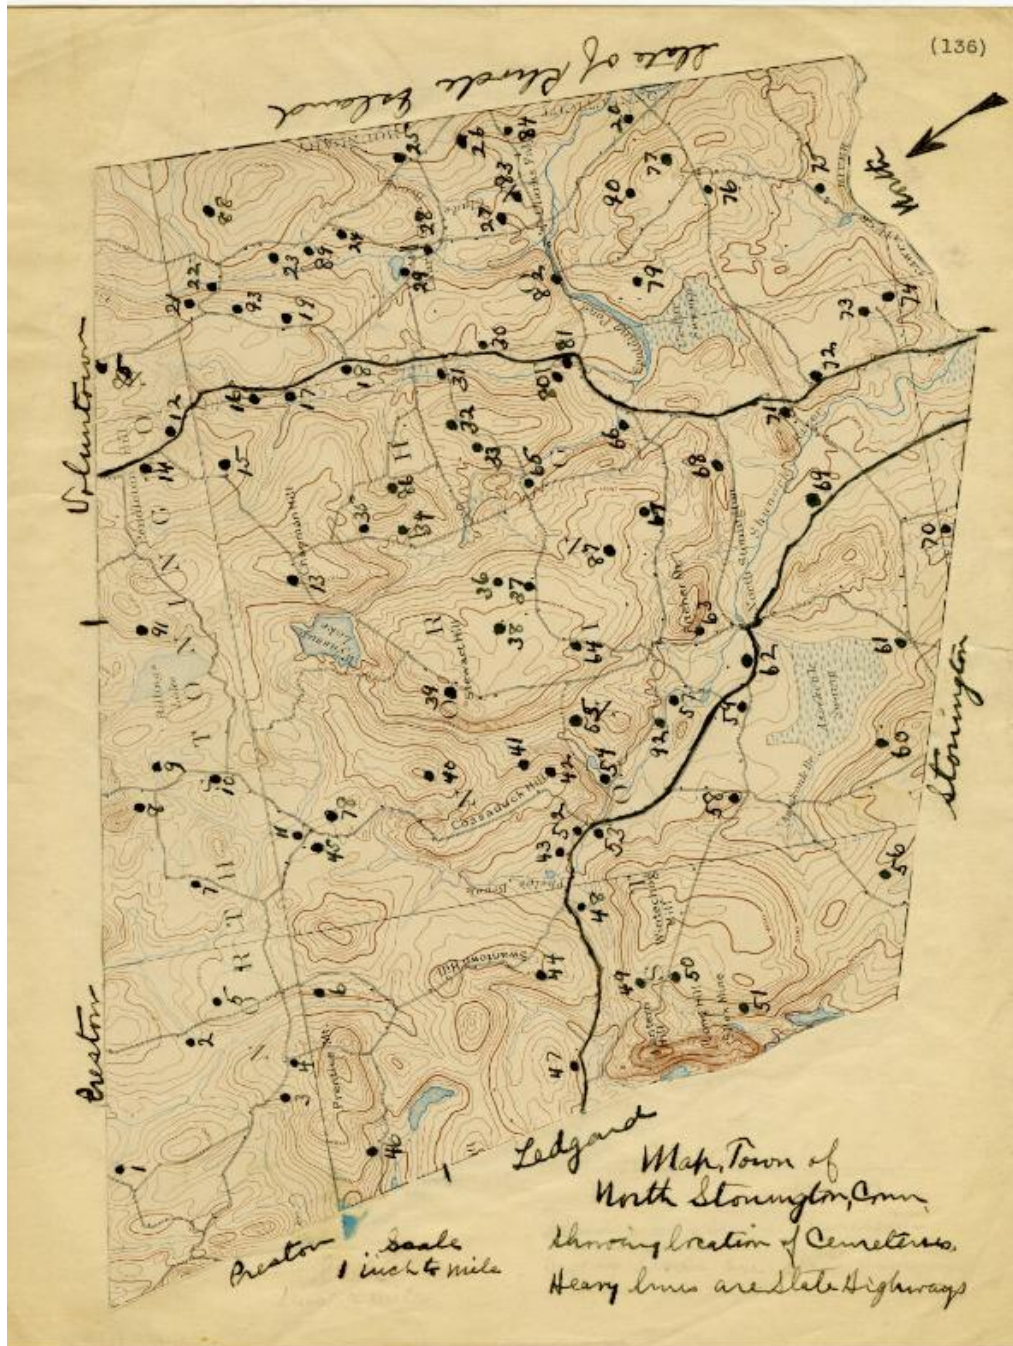 (136)
State of Rhode Island
North
Voluntown
Preston
Stonington
Ledyard
Preston
Scale
1 inch to mile
Map, Town of
North Stonington, Conn.
Showing location of Cemeteries.
Heavy lines are State Highways
NORTH STONINGTON
Pendleton Hill
Chapman Hill
Wyassup Lake
Billings Lake
Stewart Hill
Cossaduck Hill
Swantown Hill
Prentice Mt
Wintechog Hill
Phelps Brook
North Stonington
Shunock
Assekonk Swamp
Assekonk Br.
Lantern Hill
Long Hill
Silex Mine
1
2
3
4
5
6
7
8
9
10
11
12
13
14
15
16
17
18
19
20
21
22
23
24
25
26
27
28
29
30
31
32
33
34
35
36
37
38
39
40
41
42
43
44
45
46
47
48
49
50
51
52
53
54
55
56
57
58
59
60
61
62
63
64
65
66
67
68
69
70
71
72
73
74
75
76
77
78
79
80
81
82
83
84
85
86
87
88
89
90
91
92
93